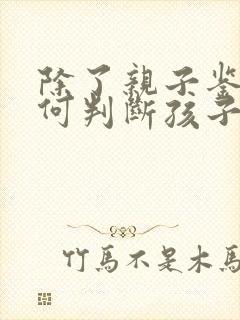 除了親子鉴
何判斷孩子
竹馬不是木馬